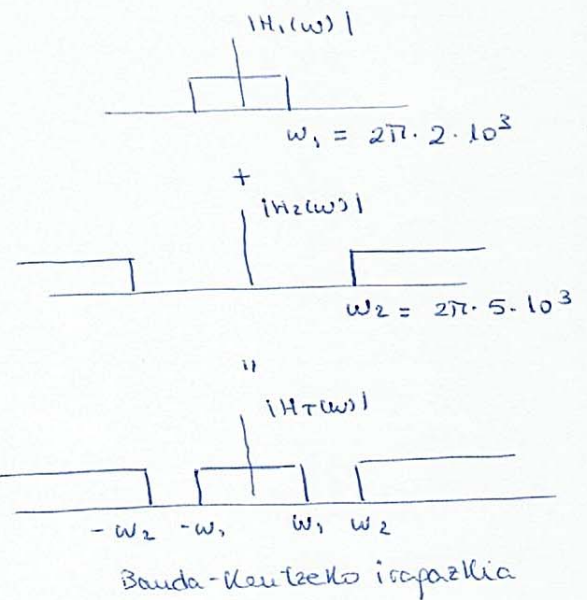 |H₁(ω)|
ω₁ = 2π·2·10³
+
|H₂(ω)|
ω₂ = 2π·5·10³
"
|H_T(ω)|
-ω₂ -ω₁ ω₁ ω₂
Banda-Kentzeko irapazkia